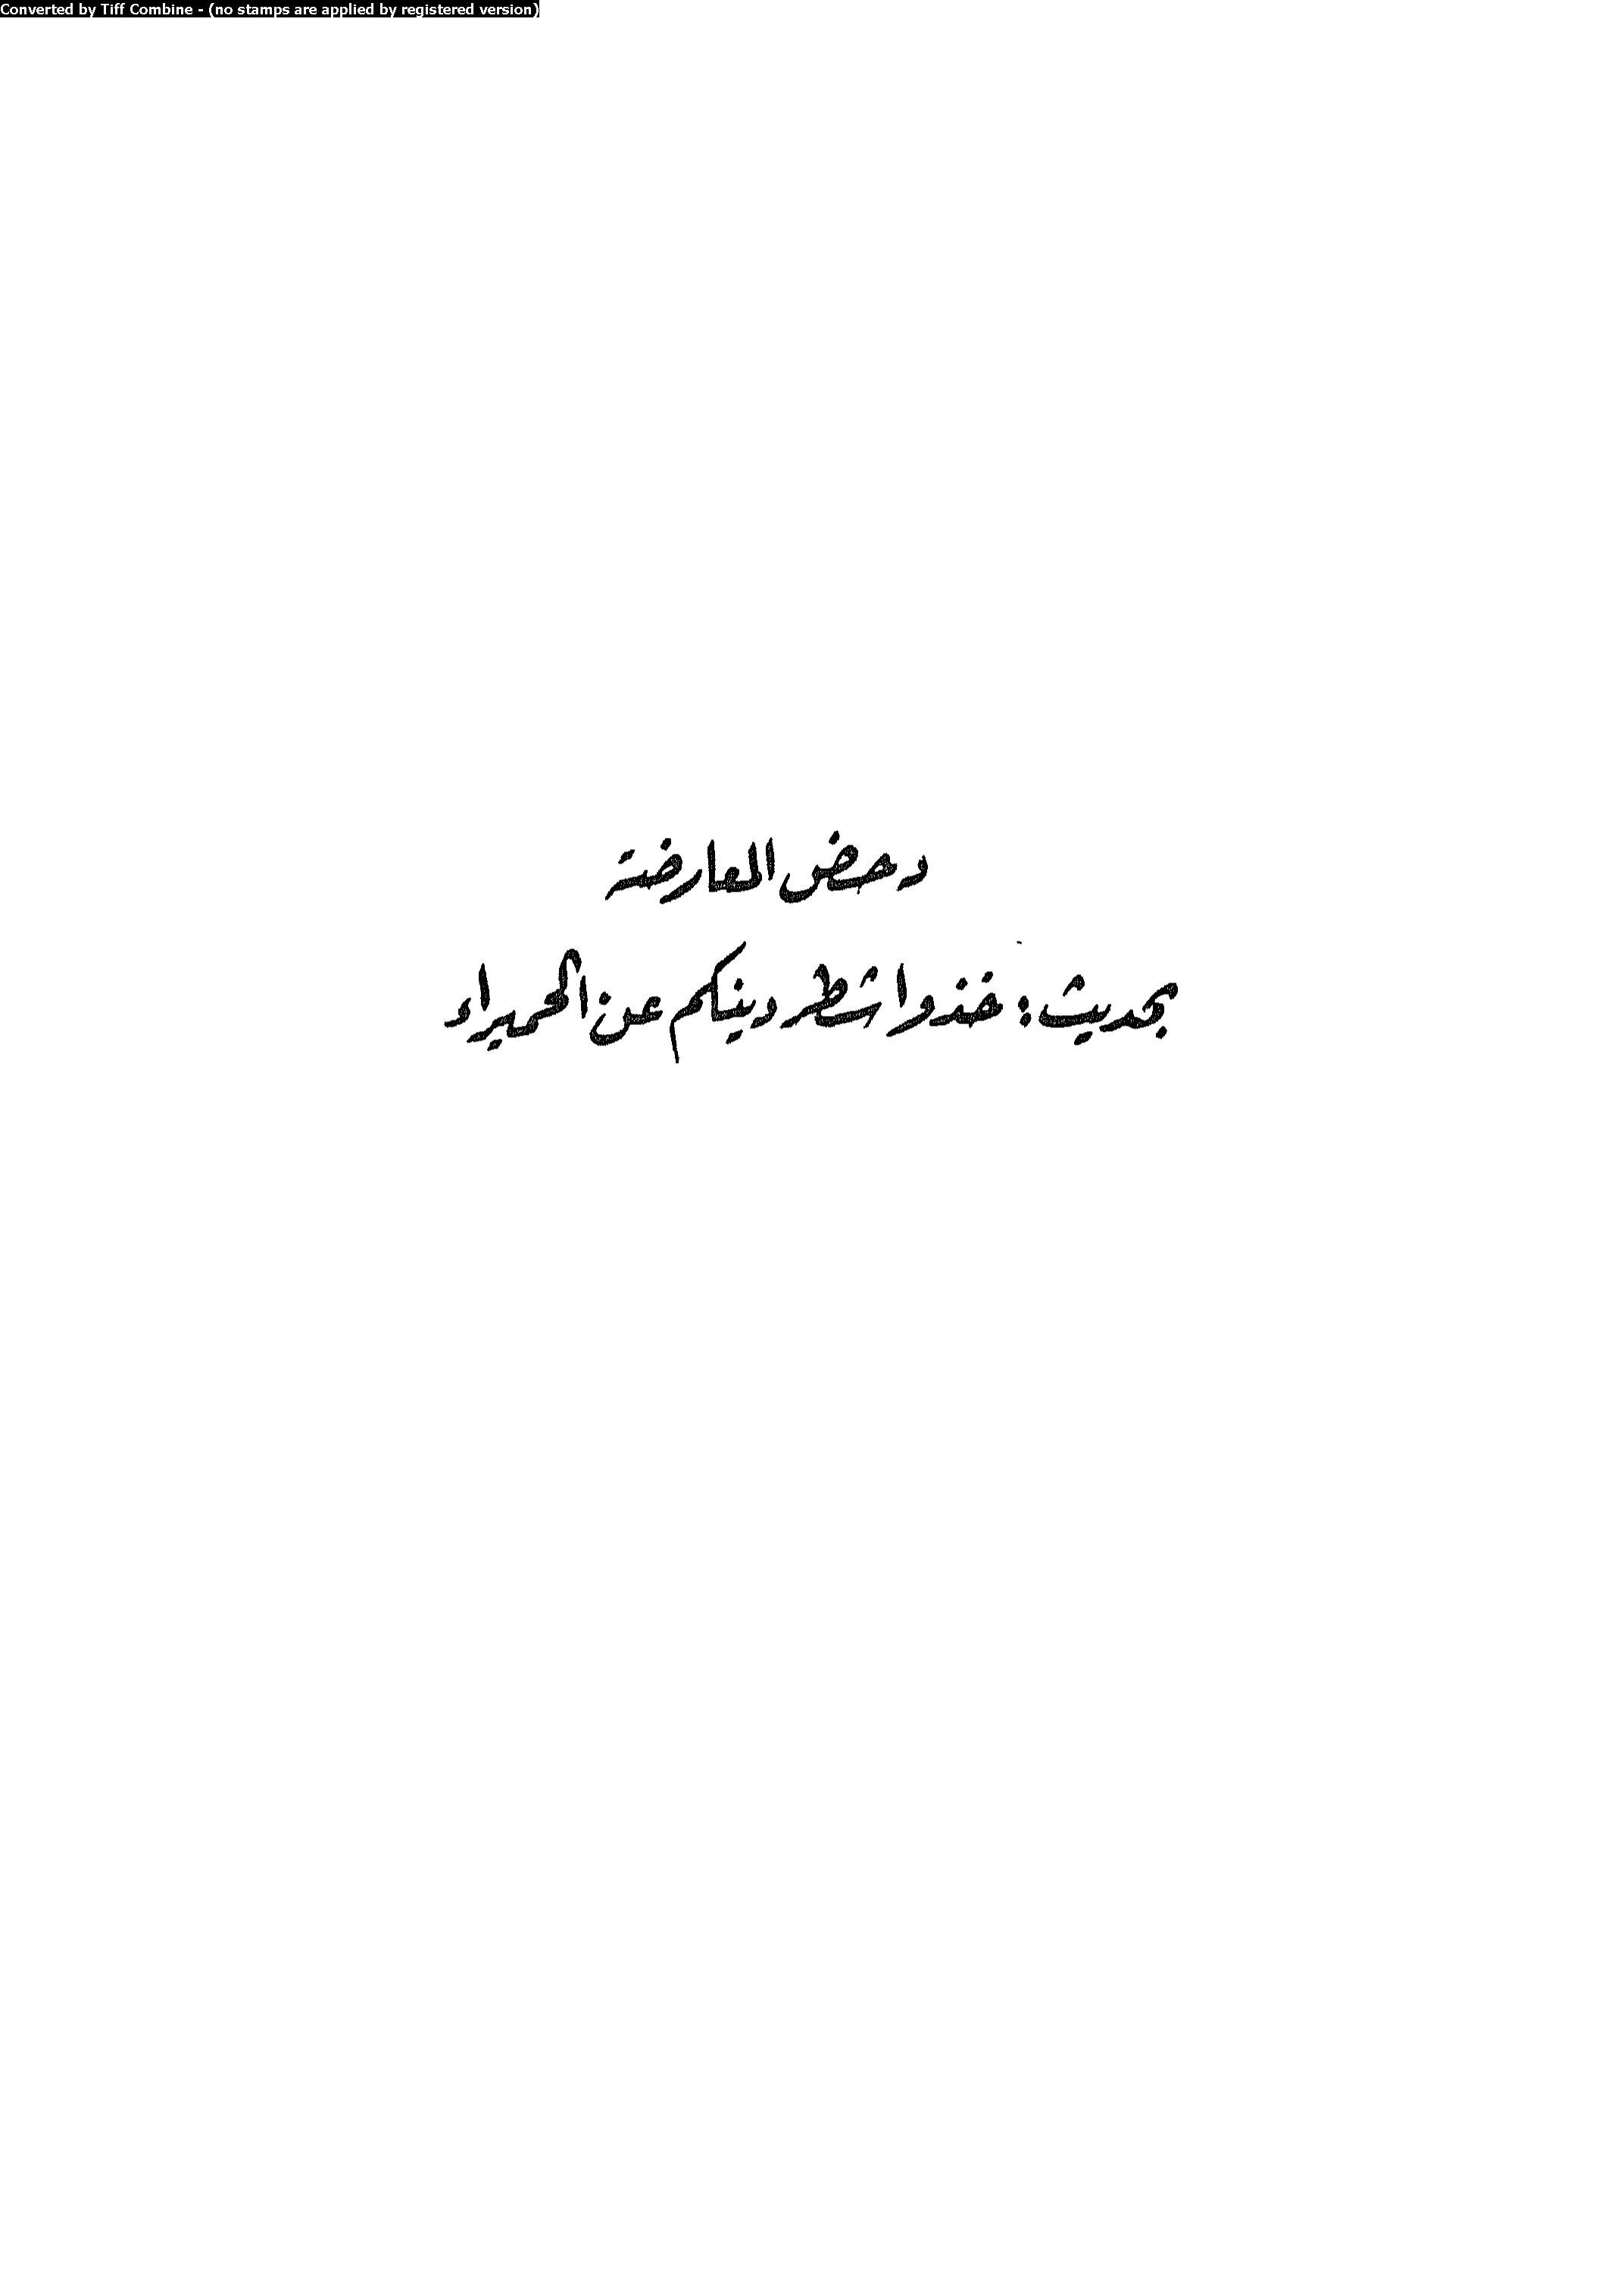 Converted by Tiff Combine - (no stamps are applied by registered version)
دحض المعارضة
بحديث: خذوا شطر دينكم عن الحميراء